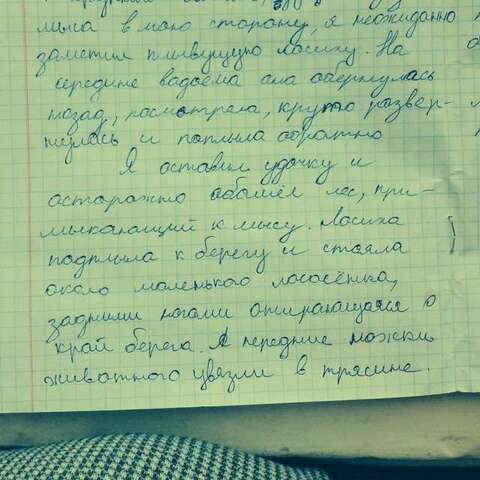 мыса в мою сторону, я неожиданно
заметил плывущую лосиху. На
середине водоёма она обернулась
назад, посмотрела, круто развер-
нулась и поплыла обратно
Я оставил удочку и
осторожно обошёл лес, при-
мыкающий к мысу. Лосиха
подплыла к берегу и стояла
около маленького лососёнка,
задними ногами опирающаяся о
край берега. А передние ножки
животного увязли в трясине.